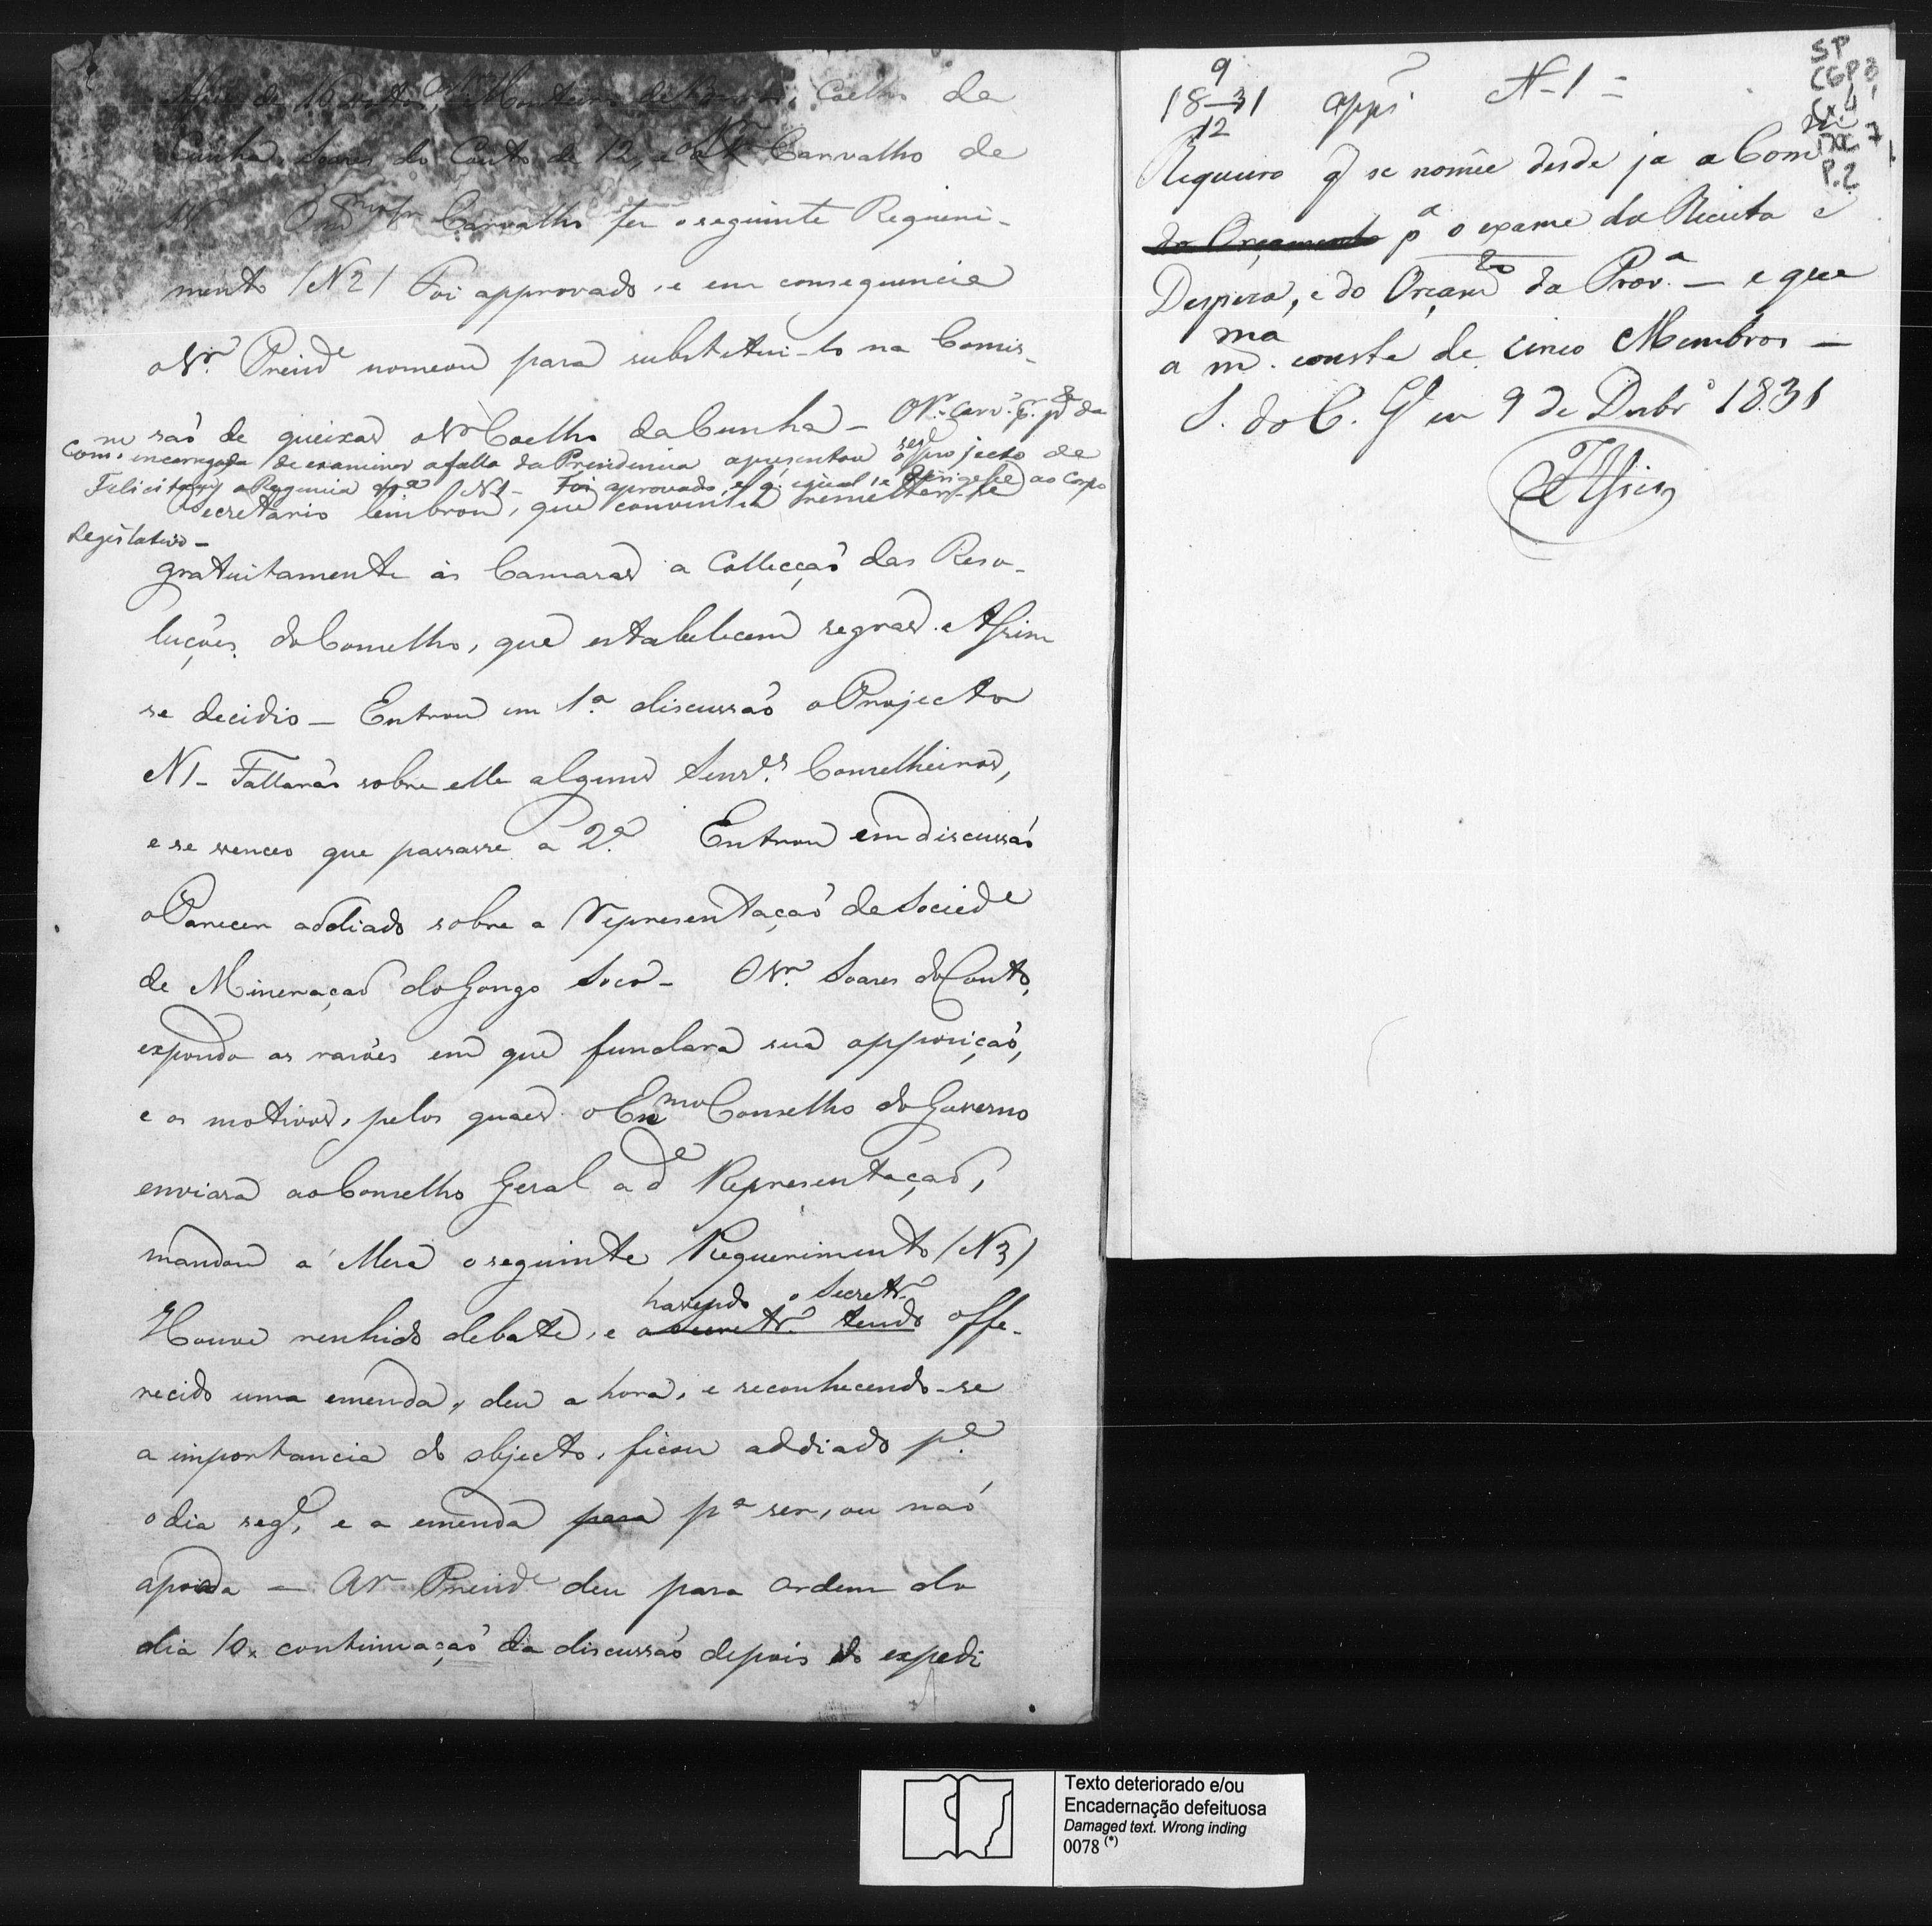 de 10 votos, Monteiro de Barros, Coelho da
Cunha, Soares do Couto de 12, e o Sr. Carvalho de
O mmo Sr Carvalho fez o seguinte Requeri-
mento (N2) Foi approvado, e em consequencia
o Sr. Presid.e nomeou para substitui-lo na Comis-
são de queixas o Sr Coelho da Cunha – O Sr. Carv.o p. p.e da
Com. encarregada de examinar a falla da Presidencia apresentou o seg.e projecto de
Felicitação a Regencia N1 – Foi aprovado, e q. igual se dirigesse ao Corpo
Legislativo –
Secretario lembrou, que convinha remetter-se
gratuitamente ás Camaras a Collecção das Reso-
luções do Conselho, que estabelecem regras. Assim
se decidio – Entrou em 1.a discussão o Projecto
N1 – Fallarão sobre elle alguns Senr.es Conselheiros,
e se venceo que passasse a 2.a Entrou em discussão
o Parecer addiado sobre a Representação da Socied.e
de Mineração do Gongo Soco – O Sr. Soares do Couto,
expondo as rasões em que fundara sua opposição,
e os motivos, pelos quaes o Exmo Conselho do Governo
enviara ao Conselho Geral a d.a Representação,
mandou á Mesa o seguinte Requerimento (N3)
havendo o Secretr.o
Houve renhido debate, e o Secretr.o tendo offe-
recido uma emenda, deu a hora, e reconhecendo-se
a importancia do objecto, ficou addiado p.a
o dia seg.e, e a emenda para p.a ser, ou não
apoiada – O Sr Presid.e deu para ordem do
dia 10 continuação da discussão depois do expedi
9
1831 app. N-1 =
12
SP
CGP 3,
Cx. 4
P.2
Requeiro q se nomêe desde ja a Com
do Orçamento p.a o exame da Receita e
Despeza, e do Orçam.to da Prov.a – e que
a m.ma conste de cinco Membros –
S. do C. G.l em 9 de Dezbr.o 1831
Texto deteriorado e/ou
Encadernação defeituosa
Damaged text. Wrong inding
0078 (*)